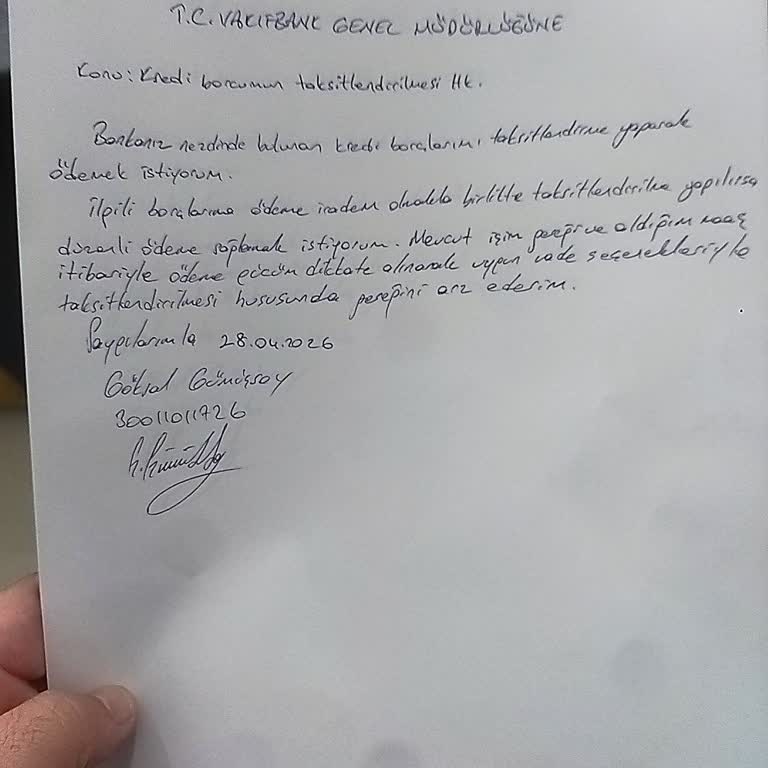 T.C. VAKIFBANK GENEL MÜDÜRLÜĞÜNE
Konu: Kredi borcumun taksitlendirilmesi Hk.
Bankanız nezdinde bulunan kredi borçlarımı taksitlendirme yaparak
ödemek istiyorum.
İlgili borçlarıma ödeme iradem olmakla birlikte taksitlendirilme yapılırsa
düzenli ödeme sağlamak istiyorum. Mevcut işim gereği ve aldığım maaş
itibariyle ödeme gücüm dikkate alınarak uygun vade seçenekleriyle
taksitlendirilmesi hususunda gereğini arz ederim.
Saygılarımla 28.04.2026
Göksal Gümüşsoy
30011011726